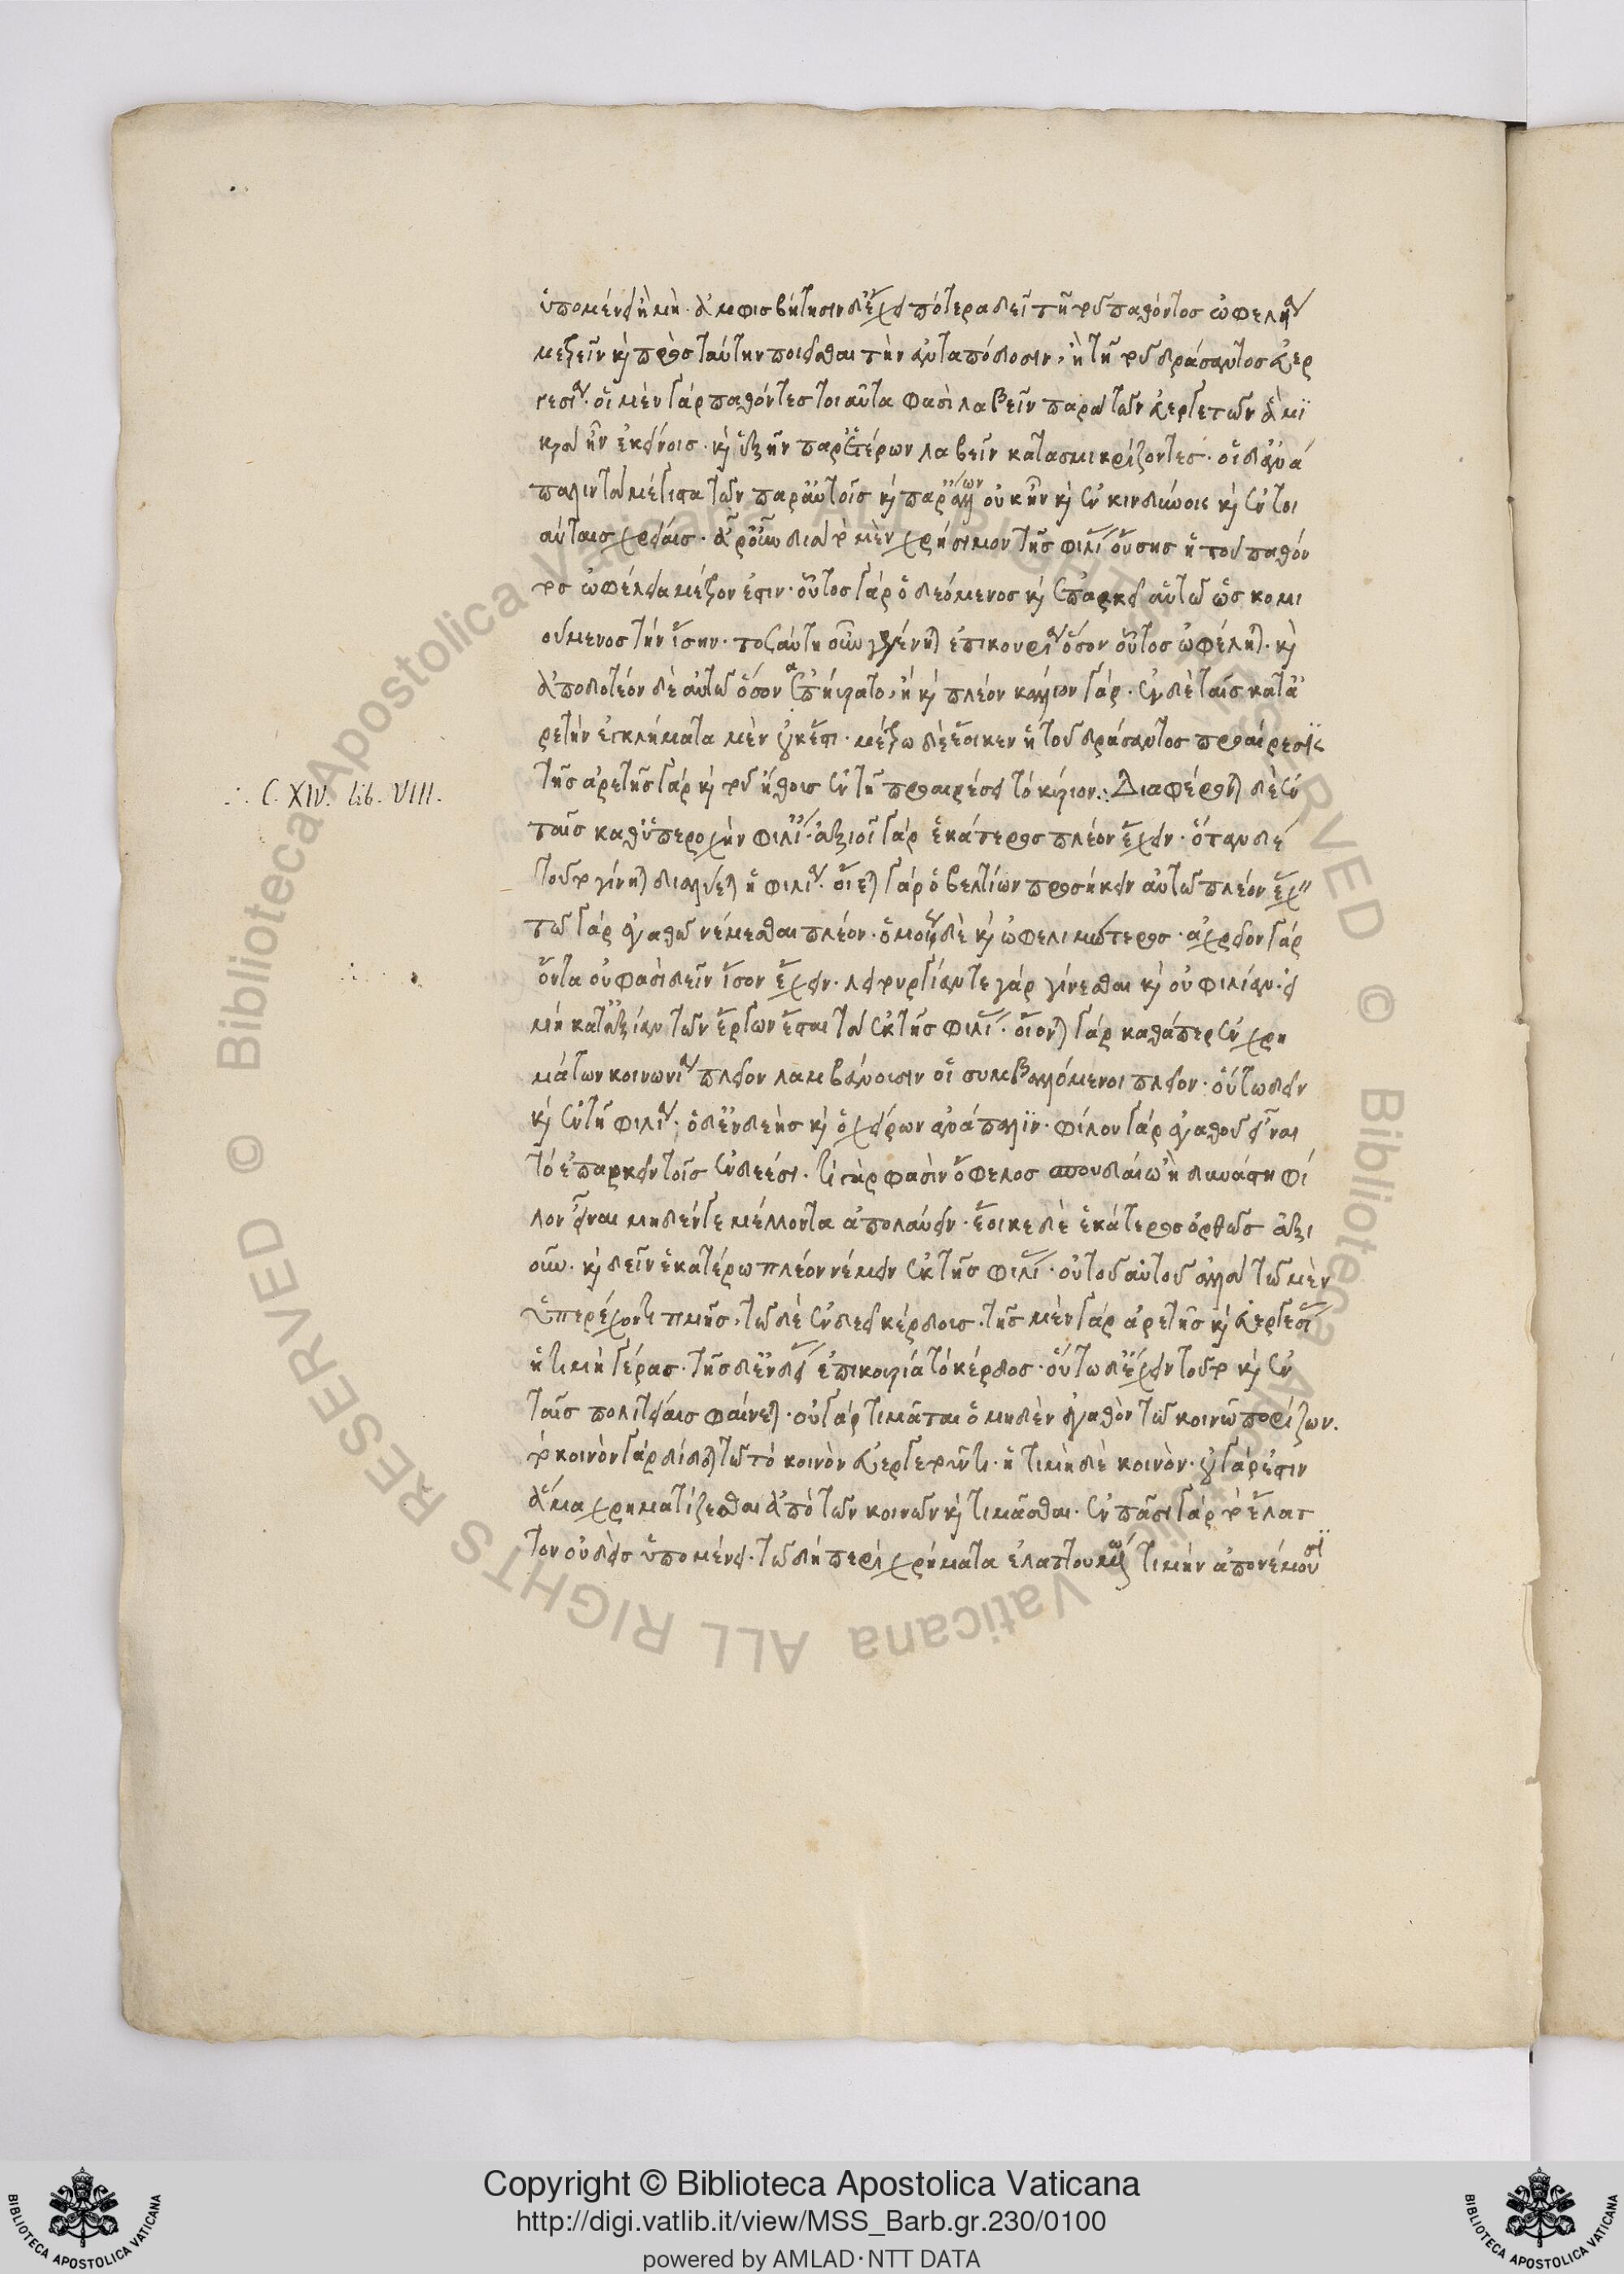 ὑπομένει ἢ μή. ἀμφισβήτησιν δ' ἔχει πότερα δεῖ τῆ τοῦ παθόντος ὠφελεία
μετρεῖν καὶ πρὸς ταύτην ποιεῖσθαι τὴν ἀνταπόδοσιν, ἢ τῆ τοῦ δράσαντος εὐερ
γεσία. οἱ μὲν γὰρ παθόντες τοιαῦτα φασὶ λαβεῖν παρὰ τῶν εὐεργετῶν ἃ μι
κρὰ ἦν ἐκείνοις. καὶ ἐξῆν παρ' ἑτέρων λαβεῖν κατασμικρίζοντες. οἱ δ' ἀνά
παλιν τὰ μέγιστα τῶν παρ' αὐτοῖς καὶ παρ' ἄλλων οὐκ ἦν καὶ ἐν κινδύνοις καὶ ἐν τοι
αύταις χρείαις. ἆρ' οὖν διὰ τὸ μὲν χρήσιμον τῆς φιλίας οὔσης ἡ τοῦ παθόν
τος ὠφέλεια μέτρον ἐστιν. οὗτος γὰρ ὁ δεόμενος καὶ ἐπαρκεῖ αὐτῶ ὡς κομι
ούμενος τὴν ἴσην. τοσαύτη οὖν γεγένηται ἐπικουρία ὅσον οὗτος ὠφέληται. καὶ
ἀποδοτέον δὲ αὐτῶ ὅσον ἐπηύρατο, ἢ καὶ πλέον κάλλιον γάρ. ἐν δὲ ταῖς κατ' ἀ
ρετὴν ἐγκλήματα μὲν οὐκ ἔστι. μέτρω δὲ ἔοικεν ἡ τοῦ δράσαντος προαίρεσις
τῆς ἀρετῆς γὰρ καὶ τοῦ ἤθους ἐν τῆ προαιρέσει τὸ κύριον. Διαφέρονται δὲ ἐν
ταῖς καθ' ὑπεροχὴν φιλίαις. ἀξιοῖ γὰρ ἑκάτερος πλέον ἔχειν. ὅταν δὲ
τοῦτο γίνηται διαλύεται ἡ φιλία. οἴεται γὰρ ὁ βελτίων προσήκειν αὐτῶ πλέον ἔχειν
τῶ γὰρ ἀγαθῶ νέμεσθαι πλέον. ὁμοίως δὲ καὶ ὠφελιμώτερος. ἀχρεῖον γὰρ
ὄντα οὐ φασὶ δεῖν ἴσον ἔχειν. λειτουργίαν τε γὰρ γίνεσθαι καὶ οὐ φιλίαν. εἰ
μὴ κατ' ἀξίαν τῶν ἔργων ἔσται τὰ ἐκ τῆς φιλίας. οἴονται γὰρ καθάπερ ἐν χρη
μάτων κοινωνία πλεῖον λαμβάνουσιν οἱ συμβαλλόμενοι πλεῖον. οὕτω δεῖν
καὶ ἐν τῆ φιλία. ὁ δ' ἐνδεὴς καὶ ὁ χείρων ἀνάπαλιν. φίλου γὰρ ἀγαθοῦ εἶναι
τὸ ἐπαρκεῖν τοῖς ἐνδεέσι. τί γὰρ φασὶν ὄφελος σπουδαίω ἢ δυνάστη φί
λον εἶναι μηδέν γε μέλλοντα ἀπολαύειν. ἔοικε δὲ ἑκάτερος ὀρθῶς ἀξι
οῦν. καὶ δεῖν ἑκατέρω πλέον νέμειν ἐκ τῆς φιλίας. οὐ τοῦ αὐτοῦ ἀλλὰ τῶ μὲν
ὑπερέχοντι τιμῆς, τῶ δὲ ἐνδεεῖ κέρδους. τῆς μὲν γὰρ ἀρετῆς καὶ εὐεργεσίας
ἡ τιμὴ γέρας. τῆς δ' ἐνδείας ἐπικουρία τὸ κέρδος. οὕτω δ' ἔχειν τοῦτο καὶ ἐν
ταῖς πολιτείαις φαίνεται. οὐ γὰρ τιμᾶται ὁ μηδὲν ἀγαθὸν τῶ κοινῶ πορίζων.
τὸ κοινὸν γὰρ δίδοται τῶ τὸ κοινὸν εὐεργετοῦντι. ἡ τιμὴ δὲ κοινόν. οὐ γὰρ ἐστιν
ἅμα χρηματίζεσθαι ἀπὸ τῶν κοινῶν καὶ τιμᾶσθαι. ἐν πᾶσι γὰρ τὸ ἔλατ
τον οὐδεὶς ὑπομένει. τῶ δὴ περὶ χρήματα ἐλαττουμένω τιμὴν ἀπονέμουσι
∴ C. XIV. lib. VIII.
Copyright © Biblioteca Apostolica Vaticana
http://digi.vatlib.it/view/MSS_Barb.gr.230/0100
powered by AMLAD·NTT DATA
BIBLIOTECA APOSTOLICA VATICANA
BIBLIOTECA APOSTOLICA VATICANA
© Biblioteca Apostolica Vaticana ALL RIGHTS RESERVED
© Biblioteca Apostolica Vaticana ALL RIGHTS RESERVED